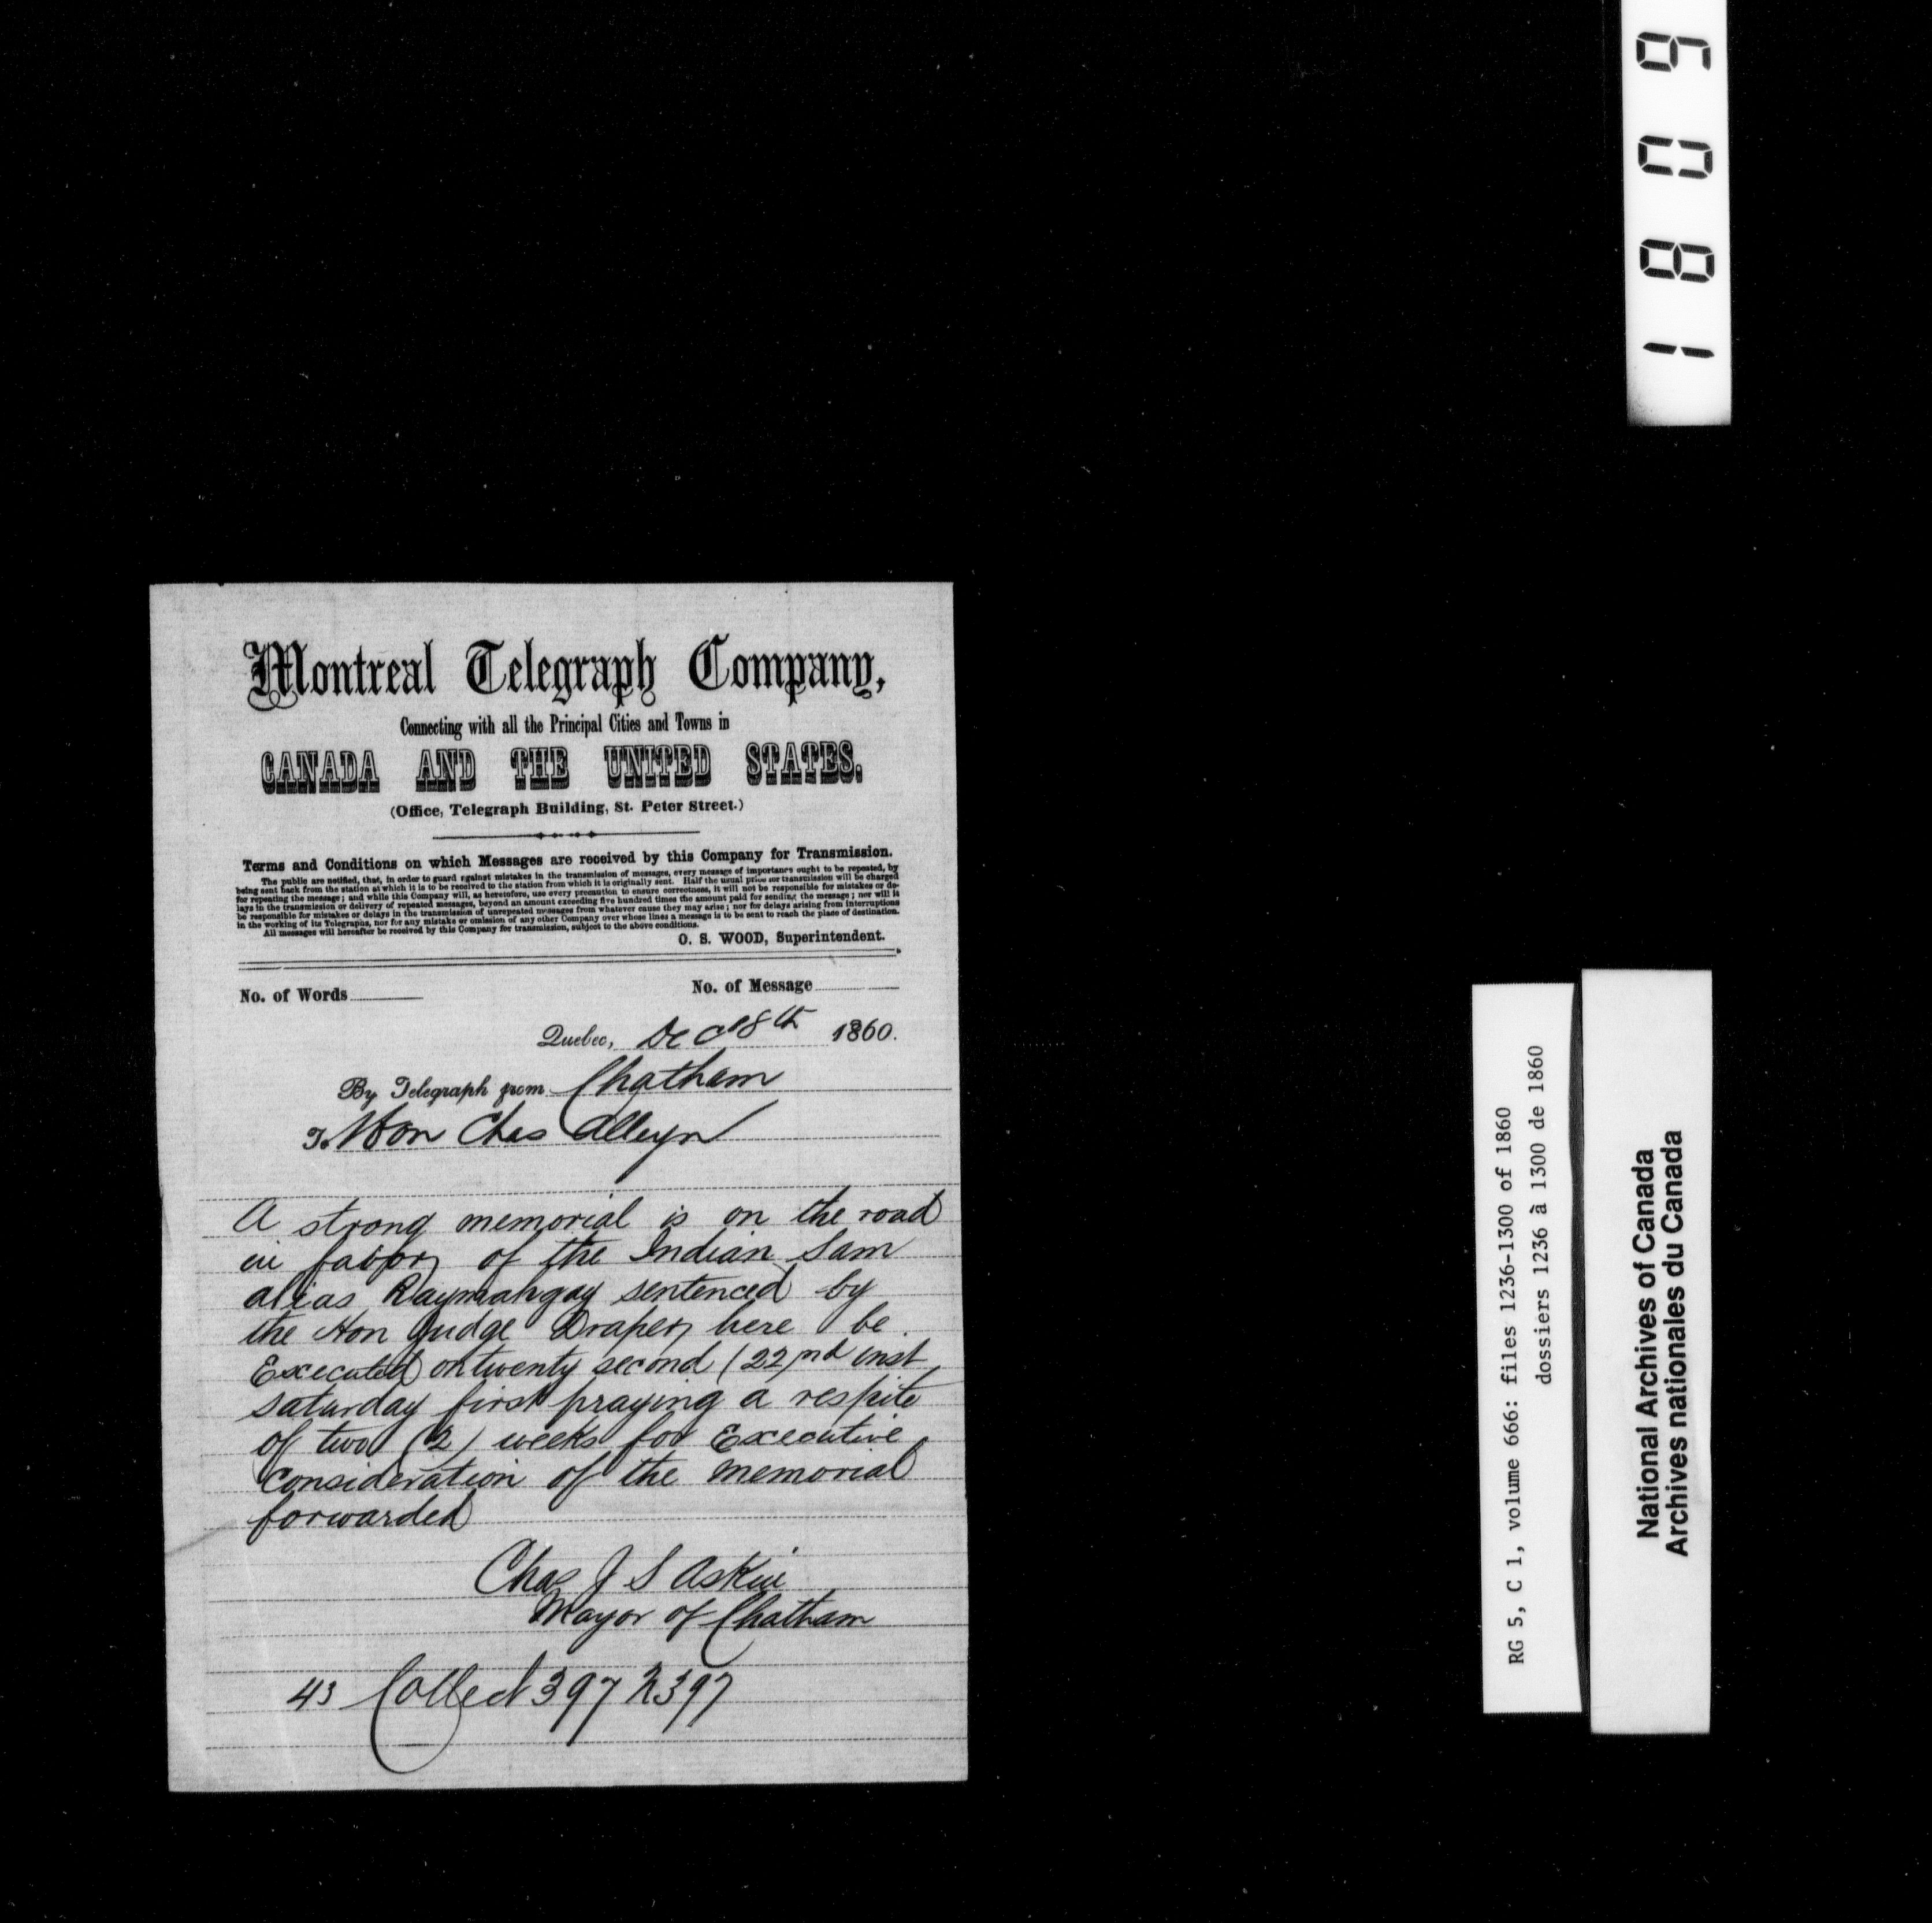 1809
Montreal Telegraph Company,
Connecting with all the Principal Cities and Towns in
CANADA AND THE UNITED STATES.
(Office, Telegraph Building, St. Peter Street.)
Terms and Conditions on which Messages are received by this Company for Transmission.
The public are notified, that, in order to guard against mistakes in the transmission of messages, every message of importance ought to be repeated, by
being sent back from the station at which it is to be received to the station from which it is originally sent. Half the usual price for transmission will be charged
for repeating the message; and while this Company will, as heretofore, use every precaution to ensure correctness, it will not be responsible for mistakes or de-
lays in the transmission or delivery of repeated messages, beyond an amount exceeding five hundred times the amount paid for sending the message; nor will it
be responsible for mistakes or delays in the transmission of unrepeated messages from whatever cause they may arise; nor for delays arising from interruptions
in the working of its Telegraphs, nor for any mistake or omission of any other Company over whose lines a message is to be sent to reach the place of destination.
All messages will hereafter be received by this Company for transmission, subject to the above conditions.
O. S. WOOD, Superintendent.
No. of Words
No. of Message
Quebec, Dec 18th 1860.
By Telegraph from Chatham
To Hon Chas Alleyn
A strong memorial is on the road
in favor of the Indian Sam
alias Raymahgay sentenced by
the Hon Judge Draper here be
Executed on twenty second (22nd inst
saturday first praying a respite
of two (2) weeks for Executive
consideration of the memorial
forwarded
Chas J S Askin
Mayor of Chatham
43 Collect 397 2397
RG 5, C 1, volume 666: files 1236-1300 of 1860
dossiers 1236 à 1300 de 1860
National Archives of Canada
Archives nationales du Canada